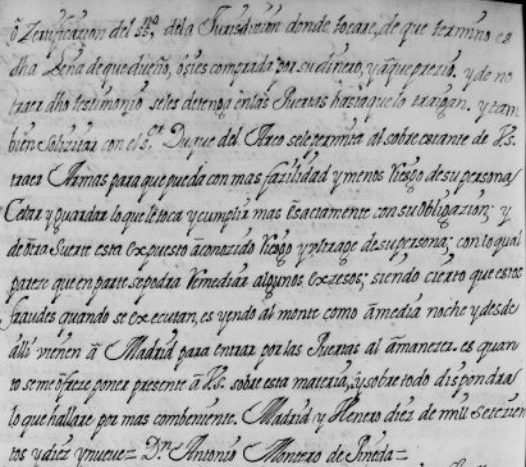 ô Zertificazion del ss.no dela Jurisdizion donde tocare, de que termino es
dha Leña de que dueño, ô si es comprada por su dinero, y â que prezio. y de no
traer dho testimonio se les detenga en las Puertas hasta que lo traigan. y tam
bien Solizitar con el s.or Duque del Arco se le permita al sobre estante de Vs.
traer Armas para que pueda con mas fazilidad y menos Riesgo de su persona
Celar y guardar lo que le toca y cumplir mas esactamente con su obligazion; y
de ôtra Suerte esta expuesto â conozido Riesgo y vltrage de su persona; con lo qual
pareze que en parte se podra Remediar algunos exzesos; siendo cierto que estos
fraudes quando se executan, es yendo al monte como â media noche y desde
alli vienen â Madrid para entrar por las Puertas al âmanezer. es quan
to se me ôfreze poner presente â Vs. sobre esta materia, y sobre todo dispondra
lo que hallare por mas combeniente. Madrid y Henero diez de mill setezien
tos y diez y nueve = Dn Antonio Montero de Pineda =